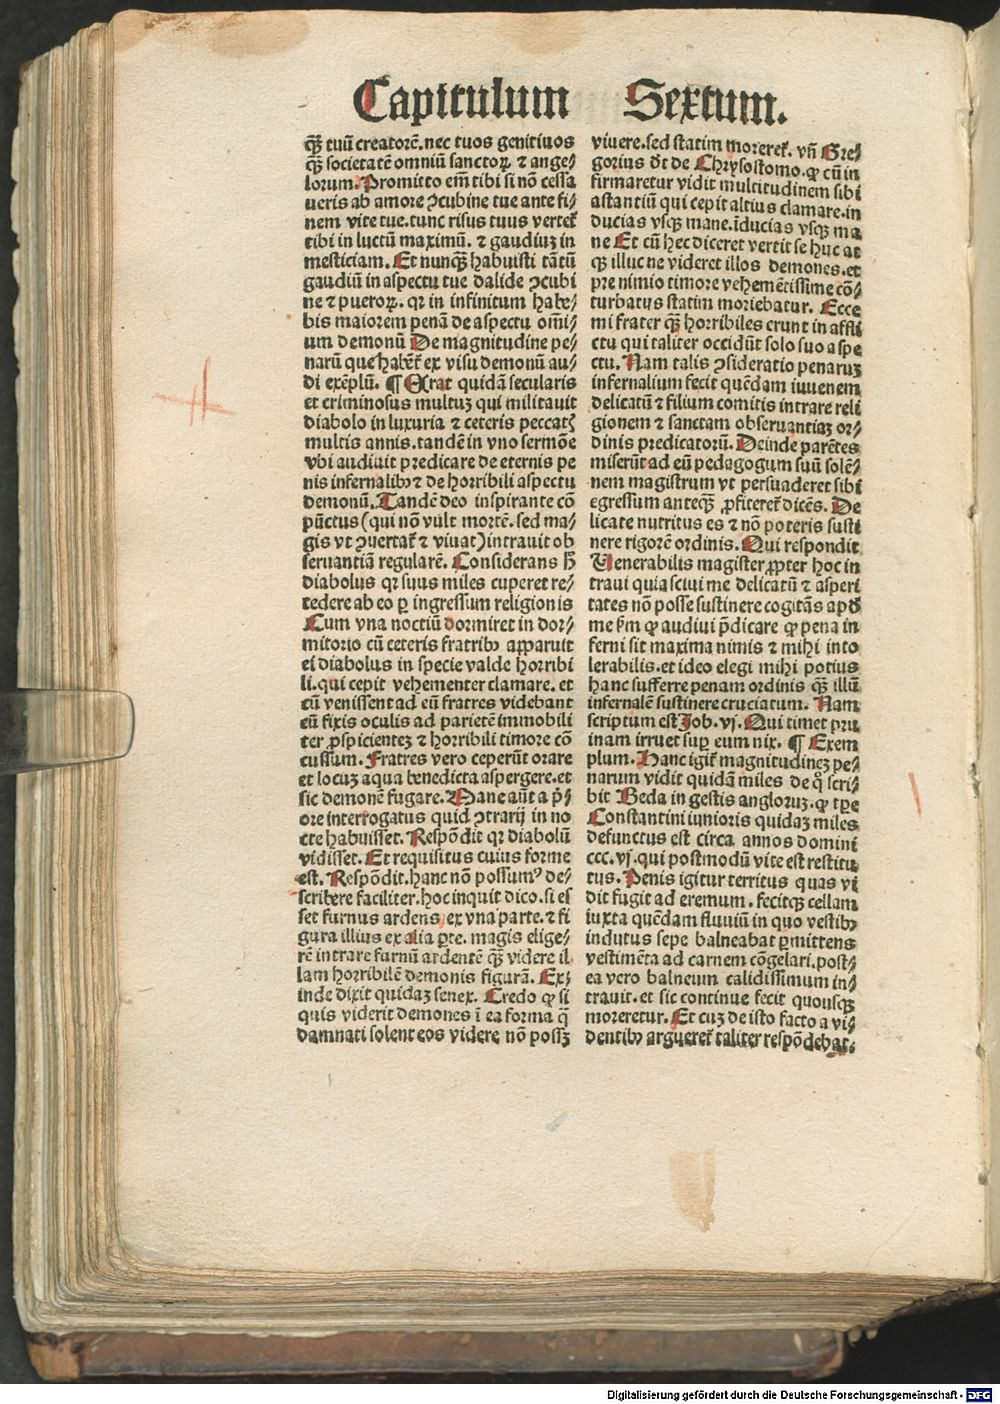 Capitulum Sextum.
qꝫ̃ tuũ creatorẽ. nec tuos genitiuos
qꝫ̃ societatẽ omniũ sanctoꝝ. ⁊ ange⸗
lorum. Promitto em̃ tibi si nõ cessa
ueris ab amore ꝯcubine tue ante fi⸗
nem vite tue. tunc risus tuus vertet᷑
tibi in luctũ maximũ. ⁊ gaudiuꝫ in
mesticiam. Et nunqꝫ̃ habuisti tãtũ
gaudiũ in aspectu tue dalide ꝯcubi
ne ⁊ pueroꝝ. qꝛ in infinitum habe⸗
bis maiorem penã de aspectu om̃i⸗
um demonũ De magnitudine pe⸗
narũ que habẽt᷑ ex visu demonũ au⸗
di exẽplũ. ¶ Erat quidã secularis
et criminosus multuꝫ qui militauit
diabolo in luxuria ⁊ ceteris peccatꝭ
multis annis. tandẽ in vno sermõe
vbi audiuit predicare de eternis pe
nis infernalibꝫ ⁊ de horribili aspectu
demonũ. Tandẽ deo inspirante cõ
pũctus (qui nõ vult mortẽ. sed ma⸗
gis vt ꝯuertat᷑ ⁊ viuat) intrauit ob
seruantiã regularẽ. Considerans h̃
diabolus qꝛ suus miles cuperet re⸗
cedere ab eo ꝑ ingressum religionis
Cum vna noctiũ dormiret in dor⸗
mitorio cũ ceteris fratribꝫ apparuit
ei diabolus in specie valde horribi
li. qui cepit vehementer clamare. et
cũ venissent ad eũ fratres videbant
eũ fixis oculis ad parietẽ immobili
ter ꝓspicienteꝫ ⁊ horribili timore cõ
cussum. Fratres vero ceperũt orare
et locuꝫ aqua benedicta aspergere. et
sic demonẽ fugare. Mane aũt a p̃i⸗
ore interrogatus quid ꝯtrarij in no
cte habuisset. Respõdit qꝛ diabolũ
vidisset. Et requisitus cuius forme
est. Respõdit. hanc nõ possumꝰ de⸗
scribere faciliter. hoc inquit dico. si es
set furnus ardens ex vna parte. ⁊ fi
gura illius ex alia ꝑte. magis elige⸗
rẽ intrare furnũ ardentẽ qꝫ̃ videre il
lam horribilẽ demonis figurã. Ex⸗
inde dixit quidaꝫ senex. Credo ꝙ si
quis viderit demones ĩ ea forma q̃
damnati solent eos videre nõ possꝫ
viuere. sed statim moreret᷑. vñ Gre⸗
gorius d̃t de Chrysostomo. ꝙ cũ in
firmaretur vidit multitudinem sibi
astantiũ qui cepit altius clamare. in
ducias vsqꝫ mane. ĩducias vsqꝫ ma
ne Et cũ hec diceret vertit se huc at
qꝫ illuc ne videret illos demones. et
pre nimio timore vehemẽtissime cõ⸗
turbatus statim moriebatur. Ecce
mi frater qꝫ̃ horribiles erunt in affli
ctu qui taliter occidũt solo suo aspe
ctu. Nam talis ꝯsideratio penaruꝫ
infernalium fecit quẽdam iuuenem
delicatũ ⁊ filium comitis intrare reli
gionem ⁊ sanctam obseruantiaꝫ or⸗
dinis predicatorũ. Deinde parẽtes
miserũt ad eũ pedagogum suũ solẽ⸗
nem magistrum vt persuaderet sibi
egressum anteqꝫ̃ ꝓfiteret᷑ dicẽs. De
licate nutritus es ⁊ nõ poteris susti
nere rigorẽ ordinis. Qui respondit
Venerabilis magister ꝓpter hoc in
traui quia sciui me delicatũ ⁊ asperi
tates nõ posse sustinere cogitãs apd̃
me p̃m ꝙ audiui p̃dicare ꝙ pena in
ferni sit maxima nimis ⁊ mihi into
lerabilis. et ideo elegi mihi potius
hanc sufferre penam ordinis qꝫ̃ illũ
infernalẽ sustinere cruciatum. Nam
scriptum est Job. vj. Qui timet pru
inam irruet suꝑ eum nix. ¶ Exem
plum. Hanc igit᷑ magnitudineꝫ pe⸗
narum vidit quidã miles de qͦ scri⸗
bit Beda in gestis angloruꝫ. ꝙ tꝑe
Constantini iunioris quidaꝫ miles
defunctus est circa annos domini
ccc. vj. qui postmodũ vite est restitu
tus. Penis igitur territus quas vi
dit fugit ad eremum. fecitqꝫ cellam
iuxta quẽdam fluuiũ in quo vestibꝫ
indutus sepe balneabat ꝑmittens
vestimẽta ad carnem cõgelari. post⸗
ea vero balneum calidissimum in⸗
trauit. et sic continue fecit quousqꝫ
moreretur. Et cuꝫ de isto facto a vi⸗
dentibꝫ argueret᷑ taliter respõdebat.
Digitalisierung gefördert durch die Deutsche Forschungsgemeinschaft - DFG